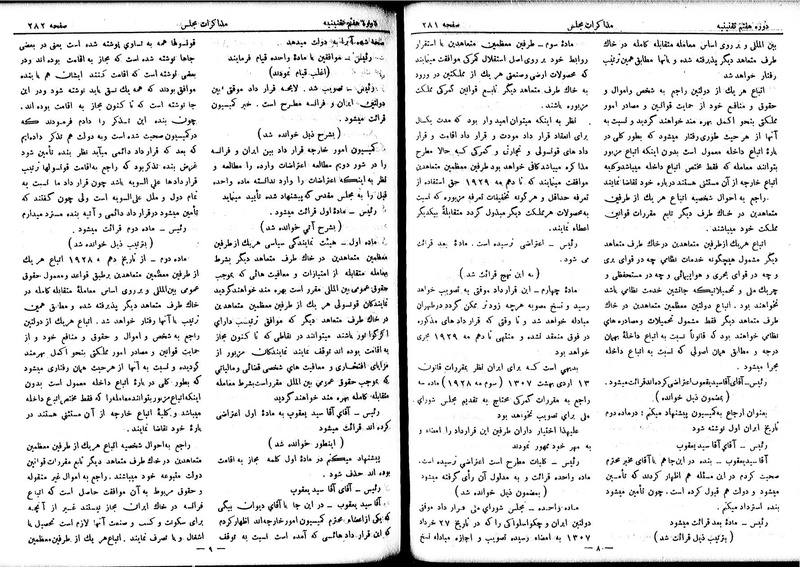 دورهٔ هفتم تقنینیه
مذاکرات مجلس
صفحه ۲۸۱
بین المللی و بر روی اساس معامله متقابله کامله در خاك
طرف متعاهد دیگر پذیرفته شده و با آنها مطابق همین ترتیب
رفتار خواهد شد
اتباع هر یك از دولتین راجع به شخص و اموال و
حقوق و منافع خود از حمایت قوانین و مصادر امور
مملکتی بنحو اکمل بهره مند خواهند گردید و نسبت به
آنها از هر حیث طوری رفتار میشود که بطور کلی در
بارهٔ اتباع داخله معمول است بدون اینکه اتباع مزبور
بتوانند معامله که فقط مختص اتباع داخله میباشد و کلیه
اتباع خارجه از آن مستثنی هستند درباره خود تقاضا نمایند
راجع به احوال شخصیه اتباع هر یك از طرفین
متعاهدین در خاك طرف متعاهد دیگر تابع مقررات قوانین
مملکت خود میباشند .
اتباع هر یك از طرفین متعاهدین در خاك طرف متعاهد
دیگر مشمول هیچگونه خدمات نظامی چه در قوای بری
و چه در قوای بحری و هوایی و چه در مستحفظی و
چریك ملی و تحمیلاتیکه جانشین خدمت نظامی باشد
نخواهند بود . اتباع دولتین معظمین متعاهدین در خاك
طرف متعاهد دیگر فقط مشمول تحمیلات و مصادره های
نظامی خواهند بود که قانوناً نسبت به اتباع داخله بهمان
درجه و مطابق همان اصولی که نسبت به اتباع داخله
مجرا میشود .
رئیس ــ آقای آقا سید یعقوب اعتراضی کرده اند قرائت میشود .
( بمضمون ذیل خوانده شد )
بعنوان ارجاع به کمیسیون پیشنهاد میکنم : در ماده دوم
اتباع ایران اول نوشته شود
رئیس ــ آقای آقا سید یعقوب
آقا سید یعقوب ــ بنده در این جا هم با آقای مخبر محترم
صحبت کردم در این مسئله هم اظهار کردند که تأمین
میشود و دولت هم قبول کرده است . چون تأمین میشود
بنده استرداد میکنم .
رئیس ــ مادهٔ بعد قرائت میشود
( بترتیب ذیل قرائت شد )
مادهٔ سوم ــ طرفین معظمین متعاهدین با استقرار
روابط خود بر روی اصل استقلال گمرکی موافقت مینمایند
که محصولات ارضی و صنعتی هر یك از مملکتین در ورود
به خاك طرف متعاهد دیگر تابع قوانین گمرکی مملکت
مزبوره باشند .
نظر به اینکه میتوان امید وار بود که مدت یکسال
برای انعقاد قرار داد مودت و قرار داد اقامت و قرار
داد های قونسولی و تجارتی و گمرکی که حالا مطرح
مذاکره میباشد کافی خواهد بود طرفین معظمین متعاهدین
موافقت مینمایند که تا دهم مه ۱۹۲۹ حق استفاده از
تعرفه حداقل و هر گونه تخفیفات تعرفه مزبوره که نسبت
به محصولات هر مملکت دیگر مبذول گردد متقابلاً بیکدیگر
اعطاء نمایند .
رئیس ــ اعتراضی نرسیده است . مادهٔ بعد قرائت
می شود .
( به این نهج قرائت شد )
مادهٔ چهارم ــ این قرارداد موقتی به تصویب خواهد
رسید و نسخ مصوبه هر چه زودتر ممکن گردد در طهران
مبادله خواهد شد و تا وقتی که قرار داد های مذکوره
در فوق منعقد نشده و منتهی تا دهم مه ۱۹۲۹ مجری
خواهد بود
بدیهی است که برای ایران نظر بمقررات قانون
۱۳ اردی بهشت ۱۳۰۷ (سوم مه ۱۹۲۸) ماده سه
راجع به مقررات گمرکی محتاج به تقدیم مجلس شورای
ملی برای تصویب نخواهد بود
علیهذا اختیار داران طرفین این قرارداد را امضاء و
به مهر خود ممهور نمودند
رئیس ــ کلیات مطرح است اعتراضی نرسیده است .
ماده واحده قرائت و به مدلول آن رأی گرفته میشود
( بمضمون ذیل خوانده شد )
مادهٔ واحده ــ مجلس شورای ملی قرار داد موقتی
دولتین ایران و چکواسلواکی را که در تاریخ ۲۷ خرداد
۱۳۰۷ به امضاء رسیده تصویب و اجازه مبادله نسخ
ــ ۸ ــ
دورهٔ هفتم تقنینیه
مذاکرات مجلس
صفحه ۲۸۲
صحه شده آنرا به دولت میدهد .
رئیس ــ موافقین با مادهٔ واحده قیام فرمایند
( اغلب قیام نمودند )
رئیس ــ تصویب شد . لایحه قرار داد موقتی بین
دولتین ایران و فرانسه مطرح است . خبر کمیسیون
قرائت میشود .
( بشرح ذیل خوانده شد )
کمیسیون امور خارجه قرار داد بین ایران و فرانسه
را در شور دویم مطالعه اعتراضات وارده را مطالعه و
نظر به اینکه اعتراضات را وارد ندانسته ماده واحده
قبل را به مجلس مقدس که پیشنهاد شده تأیید مینماید
رئیس ــ مادهٔ اول قرائت میشود .
( بشرح آتی خوانده شد )
ماده اول ــ هیئت نمایندگی سیاسی هر یك از طرفین
معظمین متعاهدین در خاك طرف متعاهد دیگر بشرط
معامله متقابله از امتیازات و معافیت هائی که بموجب
حقوق عمومی بین المللی مقرر است بهره مند خواهند گردید
نمایندگان قونسولی هر یك از طرفین متعاهدین در خاك
طرف متعاهد دیگر که موافق ترتیب دارای
اکزکواتور باشند میتوانند در نقاطی که تا کنون مجاز
به اقامت بوده اند توقف نمایند نمایندگان مزبور از
مزایای افتخاری و معافیت های شخصی قضائی و مالیاتی
که بموجب حقوق عمومی بین المللی مقرر است بشرط معامله
متقابله کامله بهره مند خواهند گردید
رئیس ــ آقای آقا سید یعقوب به مادهٔ اول اعتراضی
کرده اند قرائت میشود
( اینطور خوانده شد )
پیشنهاد میکنم در مادهٔ اول کلمه مجاز به اقامت
بوده اند حذف شود .
رئیس ــ آقای آقا سید یعقوب
آقا سید یعقوب ــ در این جا با آقای دیوان بیگی
که یکی از اعضاء محترم کمیسیون امور خارجه اند اظهار کردم
که این قرار داد هائی که آمده است نسبت به توقف
قونسولها همه به تساوی نوشته شده است یعنی در بعضی
جاها نوشته شده است که مجاز به اقامت بوده اند و در
بعضی نوشته است که اقامت کنند ایشان هم با بنده
موافق بودند که همه یك نسق باید نوشته شود و در این
جا نوشته است که تا کنون مجاز به اقامت بوده اند .
چون بنده این تذکر را دادم فرمودند که
در کمیسیون صحبت شده است و به دولت هم تذکر داده ایم
که بعد که قرار داد دائمی میآید نظر بنده تأمین شود
غرض بنده تذکر بود که راجع به اقامت قونسولها ترتیب
قرارداد ها علی السویه باشد چون قرار داد ما نسبت به
تمام دول و ملل علی السویه است ولی چون گفتند که
تأمین میشود در قرار داد دائمی و آتیه بنده مسترد میدارم
رئیس ــ ماده دوم قرائت میشود .
( بترتیب ذیل خوانده شد )
ماده دوم ــ از تاریخ دهم مه ۱۹۲۸ اتباع هر یك
از طرفین معظمین متعاهدین بر طبق قواعد و معمول حقوق
عمومی بین المللی و بر روی اساس معاملهٔ متقابله کامله در
خاك طرف متعاهد دیگر پذیرفته شده و مطابق همین
ترتیب با آنها رفتار خواهد شد . اتباع هر یك از دولتین
راجع به شخص و اموال و حقوق و منافع خود و از
حمایت قوانین و مصادر امور مملکتی بنحو اکمل بهرمند
گردیده و نسبت به آنها از هر حیث همان رفتاری میشود
که بطور کلی در بارهٔ اتباع داخله معمول است بدون
اینکه اتباع مزبور بتوانند معامله را که فقط مختص اتباع داخله
میباشد و کلیهٔ اتباع خارجه از آن مستثنی هستند در
بارهٔ خود تقاضا نمایند .
راجع به احوال شخصیه اتباع هر یك از طرفین معظمین
متعاهدین در خاك طرف متعاهد دیگر تابع مقررات قوانین
دولت متبوعه خود میباشند . راجع به اموال غیر منقوله
و حقوق مربوط به آن موافقت حاصل است که اتباع
فرانسه در خاك ایران مجاز نیستند غیر از آنچه
برای سکونت و کسب و صنعت آنها لازم است تحصیل یا
اشغال و یا تصرف نمایند . اتباع هر یك از طرفین معظمین
ــ ۹ ــ